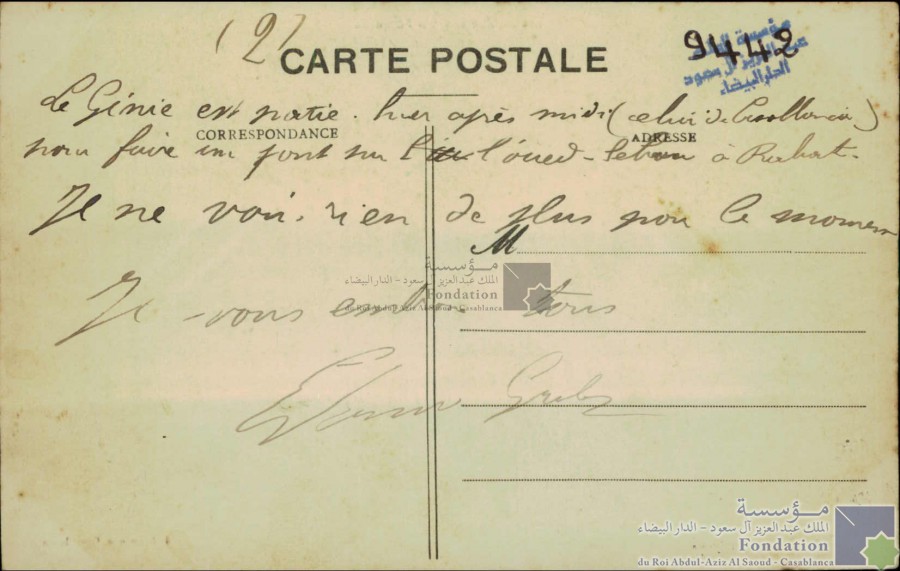 (2)
CARTE POSTALE
9442
مؤسسة الملك
عبد العزيز آل سعود
الدار البيضاء
Le Génie est partie. hier après midi (celui de Casablanca)
CORRESPONDANCE
ADRESSE
pour faire un pont sur l'oued à Rabat.
Je ne vois rien de plus pour le moment
M
مؤسسة
الملك عبد العزيز آل سعود - الدار البيضاء
Fondation
du Roi Abdul-Aziz Al Saoud - Casablanca
Je vous tous
مؤسسة
الملك عبد العزيز آل سعود - الدار البيضاء
Fondation
du Roi Abdul-Aziz Al Saoud - Casablanca